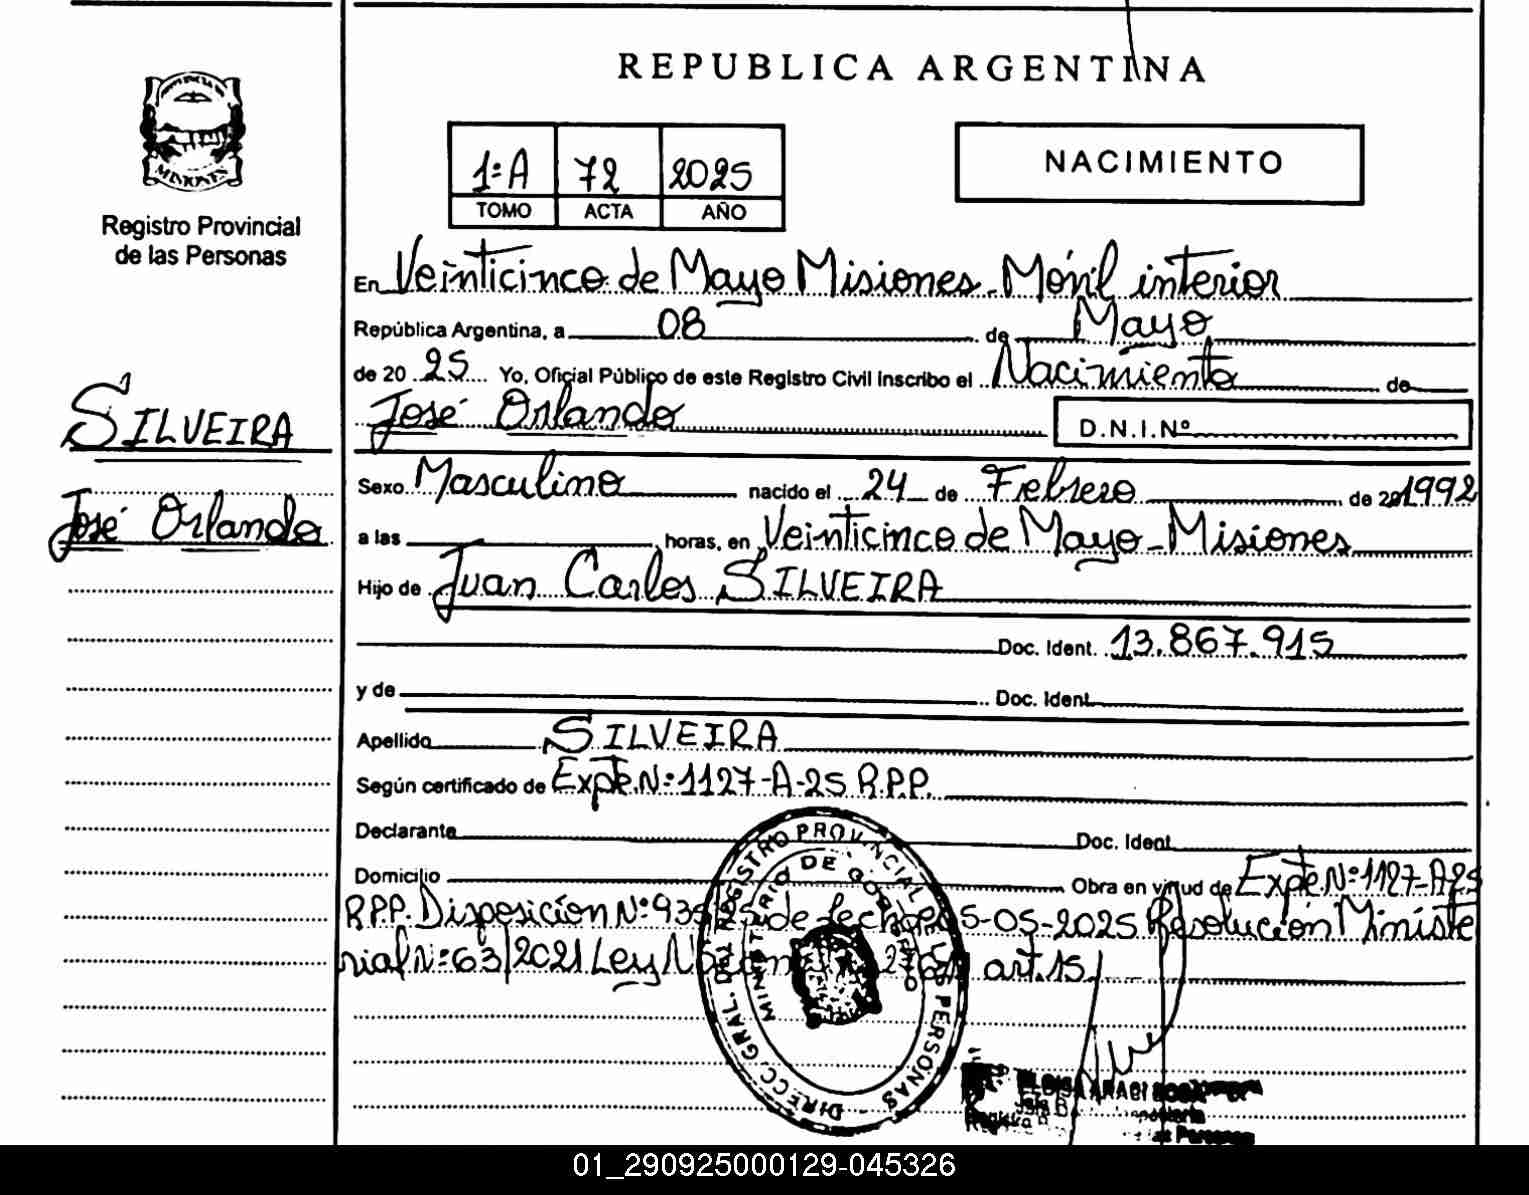 REPUBLICA ARGENTINA
PROVINCIA DE
MISIONES
Registro Provincial
de las Personas
1ºA 72 2025
TOMO ACTA AÑO
NACIMIENTO
En Veinticinco de Mayo Misiones - Móvil interior
República Argentina, a 08 de Mayo
de 20 25 Yo, Oficial Público de este Registro Civil Inscribo el Nacimiento de
José Orlando D.N.I.Nº
SILVEIRA
José Orlando
Sexo Masculino nacido el 24 de Febrero de 20 1992
a las horas, en Veinticinco de Mayo - Misiones
Hijo de Juan Carlos SILVEIRA
Doc. Ident. 13.867.915
y de Doc. Ident.
Apellido SILVEIRA
Según certificado de Expte.Nº1127-A-25 R.P.P.
Declarante Doc. Ident.
Domicilio Obra en virtud de Expte Nº1127-A25
R.P.P. Disposición Nº 935/25 de fecha 05-05-2025 Resolución Ministe
rial Nº 63/2021 Ley art.15
DIRECC. GRAL. DEL REGISTRO PROVINCIAL DE LAS PERSONAS
MINISTERIO DE GOBIERNO
01_290925000129-045326